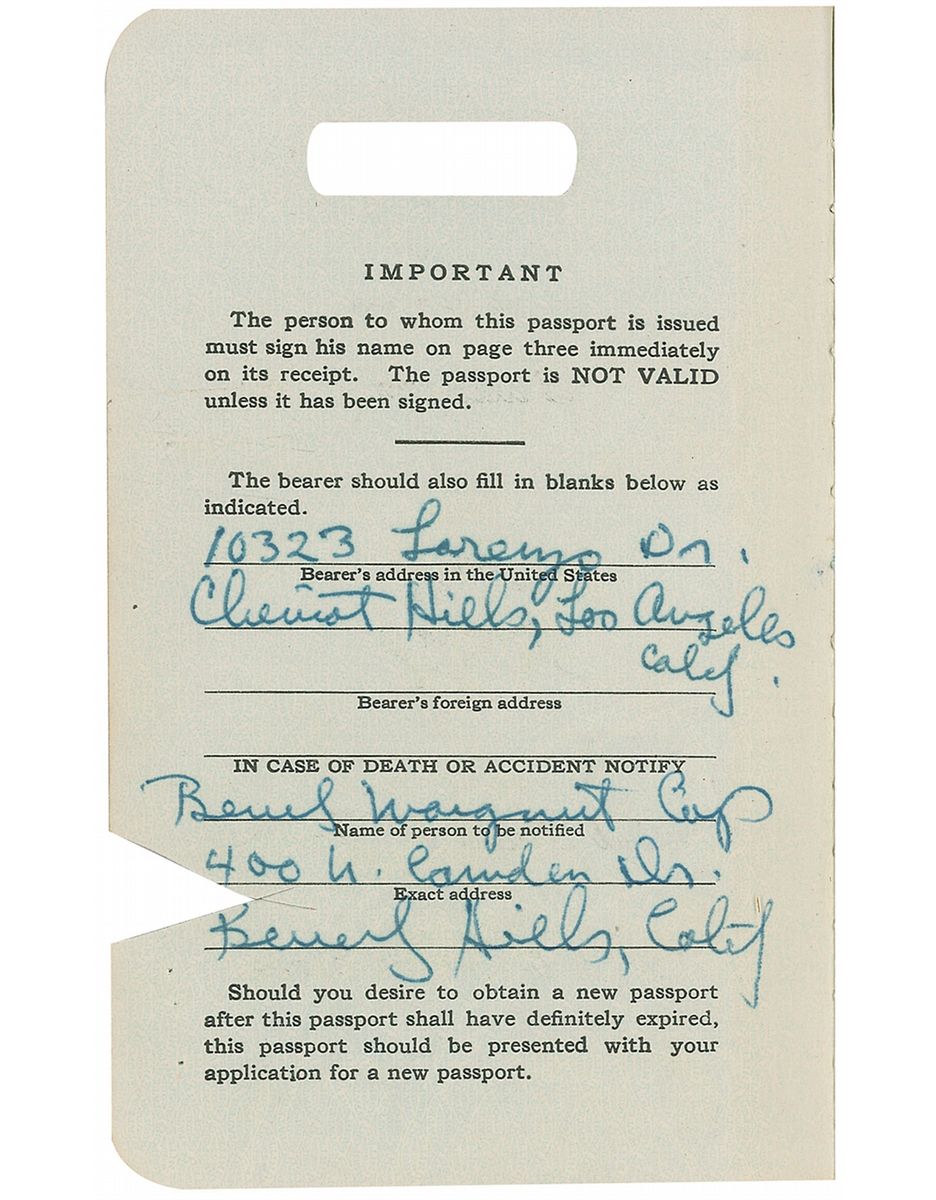 IMPORTANT
The person to whom this passport is issued
must sign his name on page three immediately
on its receipt. The passport is NOT VALID
unless it has been signed.
The bearer should also fill in blanks below as
indicated.
10323 Lorenzo Dr.
Bearer's address in the United States
Cheviot Hills, Los Angeles
Calif.
Bearer's foreign address
IN CASE OF DEATH OR ACCIDENT NOTIFY
Name of person to be notified
400 N. Camden Dr.
Exact address
Beverly Hills, Calif
Should you desire to obtain a new passport
after this passport shall have definitely expired,
this passport should be presented with your
application for a new passport.